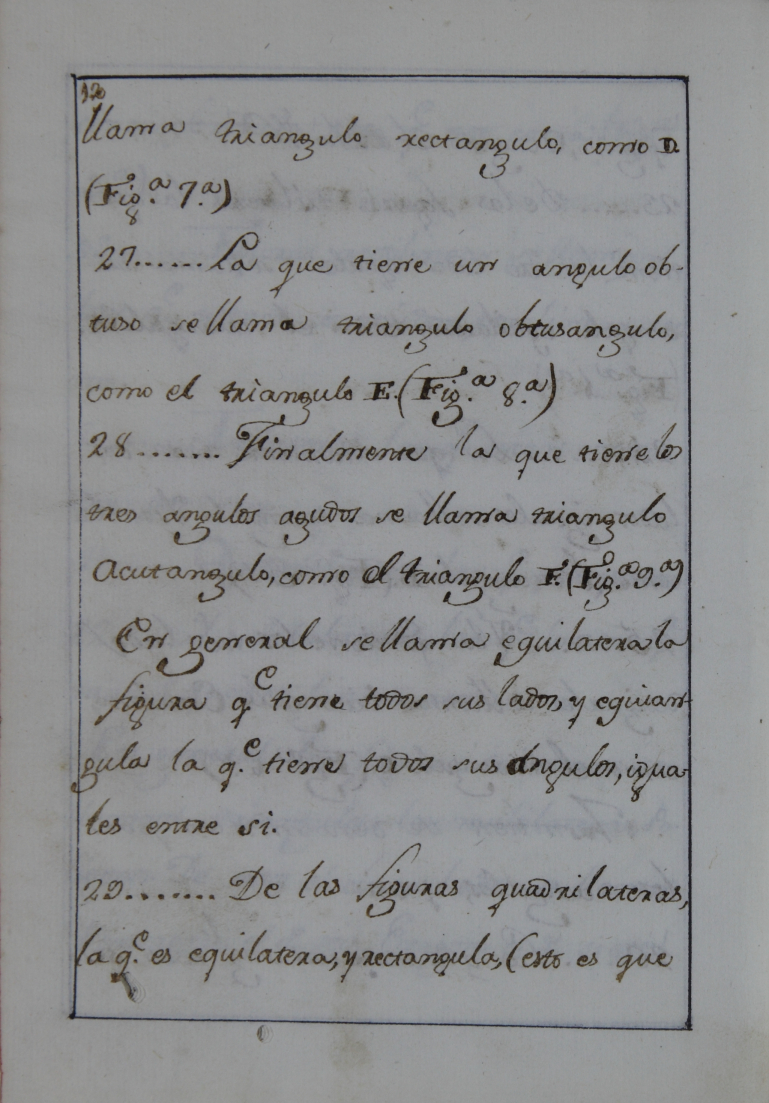 12
llama triangulo rectangulo, como D
(Fig.ª 7.ª)
27......La que tiene un angulo ob-
tuso se llama triangulo obtusangulo,
como el triangulo E. (Fig.ª 8.ª)
28.......Finalmente la que tiene los
tres angulos agudos se llama triangulo
Acutangulo, como el triangulo F. (Fig.ª 9.ª)
En general se llama equilatera la
figura q.e tiene todos sus lados, y equian-
gula la q.e tiene todos sus angulos, igua-
les entre si.
29.......De las figuras quadrilateras,
la q.e es equilatera, y rectangula, (esto es que